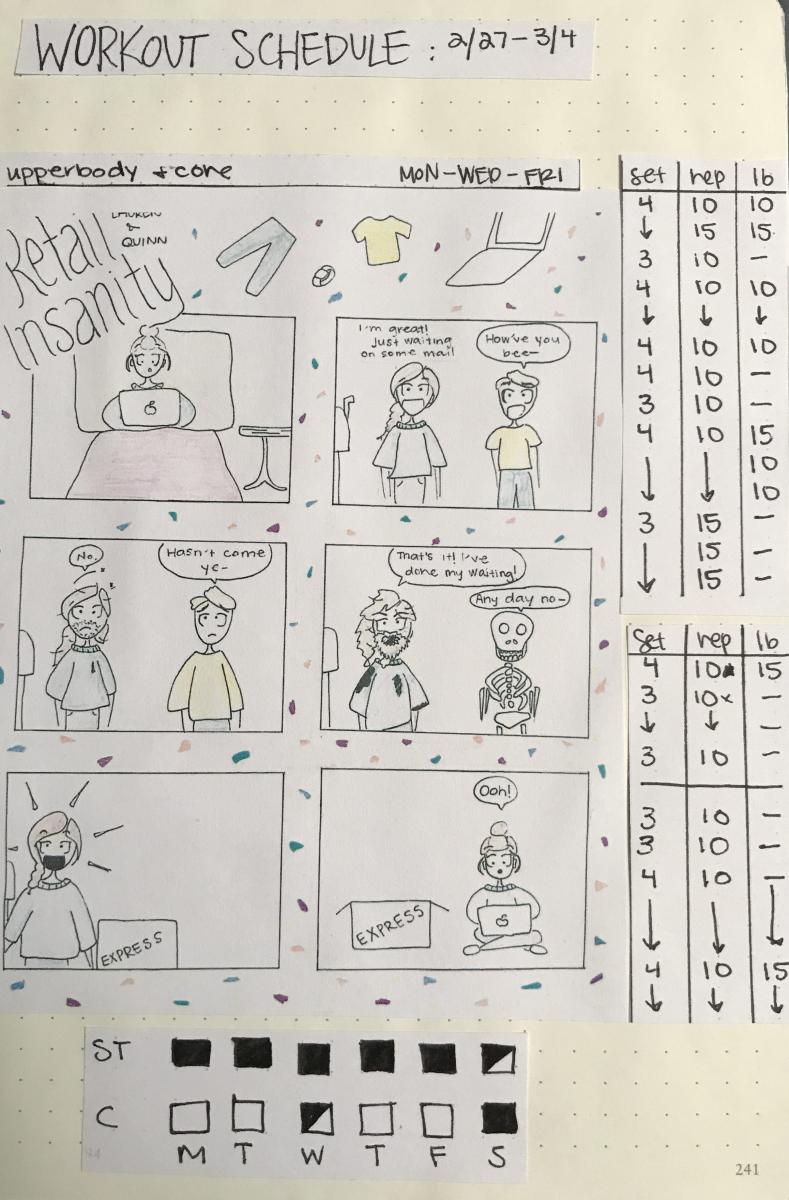 WORKOUT SCHEDULE : 2/27-3/4
upperbody + core MON-WED-FRI
Retail
Insanity
LAUREN
&
QUINN
I'm great!
Just waiting
on some mail
How've you
bee-
No.
Hasn't come
ye-
That's it! I've
done my waiting!
Any day no-
EXPRESS
Ooh!
EXPRESS
set rep lb
4 10 10
↓ 15 15
3 10 -
4 10 10
↓ ↓ ↓
4 10 10
4 10 -
3 10 -
4 10 15
10
↓ ↓ 10
3 15 -
15 -
↓ 15 -
set rep lb
4 10* 15
3 10x -
↓ ↓ -
3 10 -
3 10 -
3 10 -
4 10 -
↓ ↓ ↓
4 10 15
↓ ↓ ↓
ST
C
M T W T F S
241